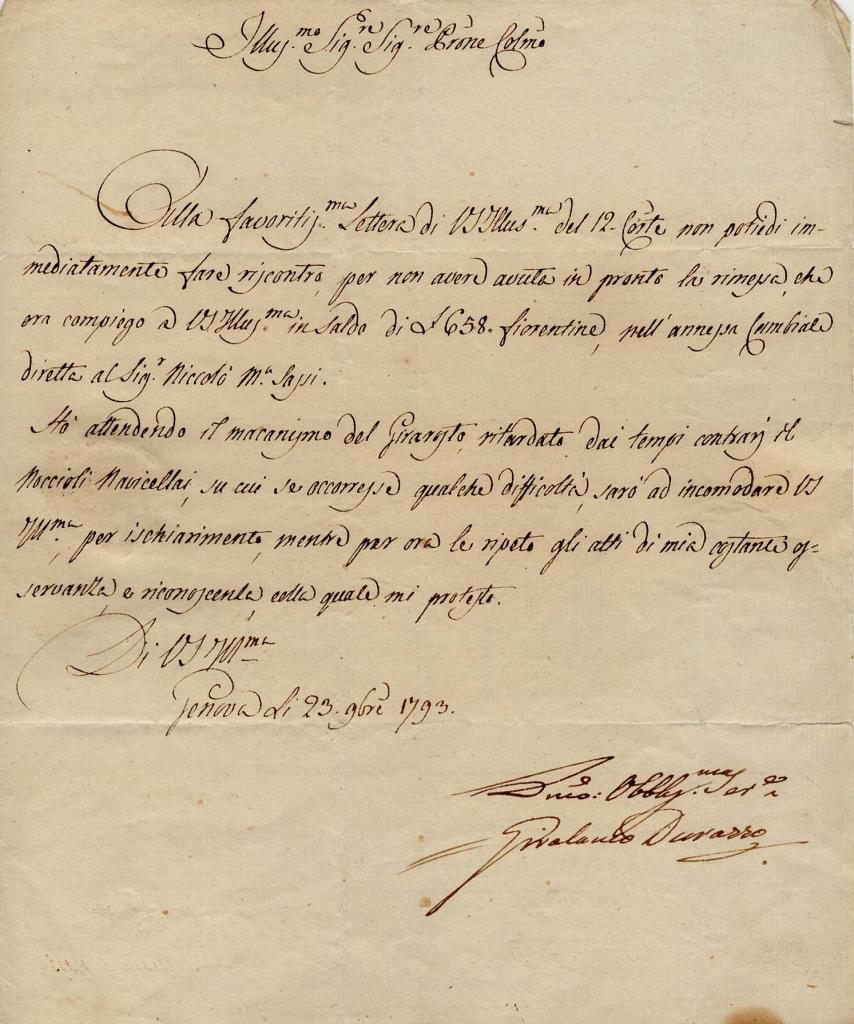 Illus.mo Sig.re Sig.re Prone Colmo
Alla favoritis.ma Lettera di VS Illus.ma del 12. Corte non potiedi im-
mediatamente fare riscontro, per non avere avuta in pronto la rimessa, che
ora compiego a VS Illus.ma in saldo di £ 658. fiorentine, nell'annessa Cambiale
diretta al Sig.r Niccolò M.a Sassi.
Stò attendendo il macanismo del Girarosto, ritardato dai tempi contrarj il
Noccioli Navicellai, su cui se occorresse qualche difficoltà, sarò ad incomodare VS
Ill.ma per ischiarimento, mentre per ora le ripeto gli atti di mia costante os-
servanza, e riconoscenza colla quale mi protesto.
Di VS Ill.ma
Genova li 23. 9bre 1793.
Dmo: Obblig.mo Ser.e
Girolamo Durazzo